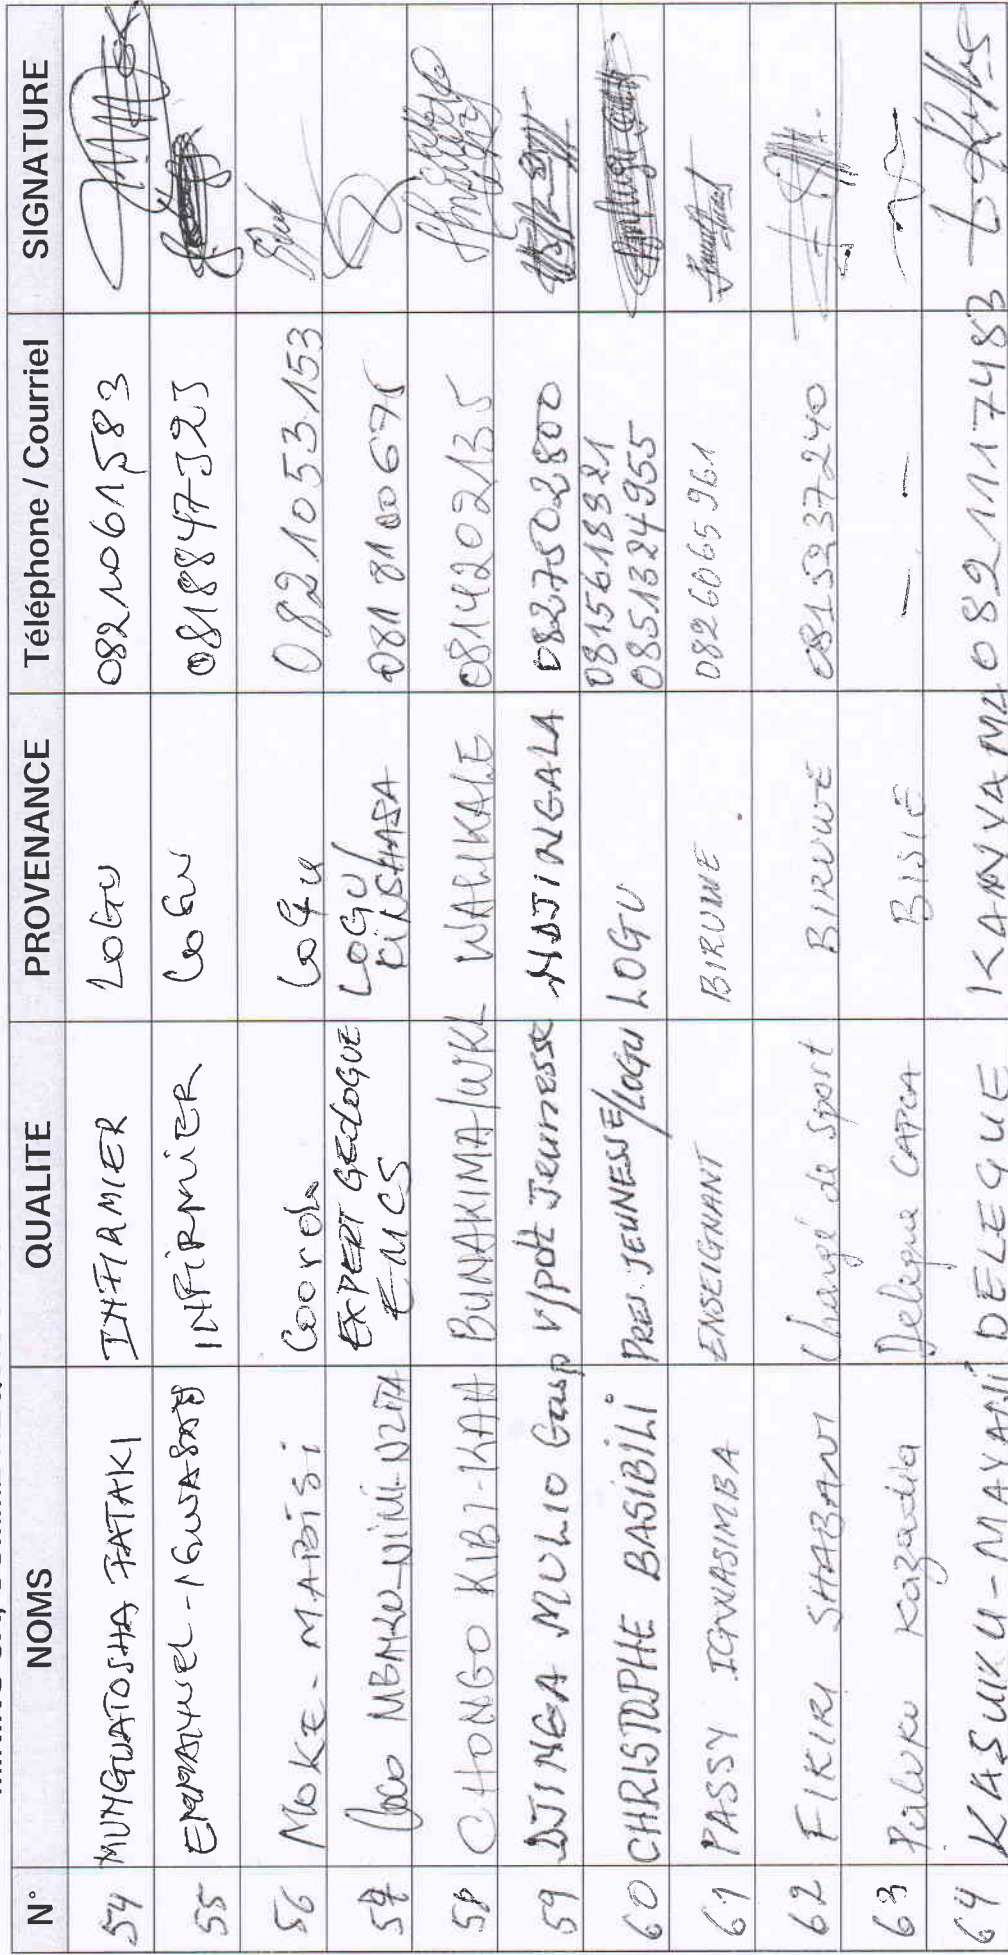 N° NOMS QUALITE PROVENANCE Téléphone / Courriel SIGNATURE
54 MUNGUATOSHA FATAKI INFIRMIER LOGU 0821061583
55 INFIRMIER LOGU 0818847323
56 MOKE - MAPISI Coord LOGU 0821053153
57 MBAKU-NIMI-NZITA EXPERT GEOLOGUE EMCS LOGU KINSHASA 081 8100675
58 CHONGO KIBI-KAH BUNAKIMA/WKL WALIKALE 0814202135
59 DJINGA MULIO Gasp V/pdt Jeunesse NDJINGALA 0827502800
60 CHRISTOPHE BASIBILI PRES. JEUNESSE/LOGU LOGU 0815618821
0851324955
61 PASSY IGWASIMBA ENSEIGNANT BIRUWE 0826065961
62 FIKIRI SHABANI Chargé de sport BIRUWE 0815237240
63 Paluku Kazadia Delegue BISIE — . —
64 KASUKU-MAYANI DELEGUE KANYAMA 0821117483